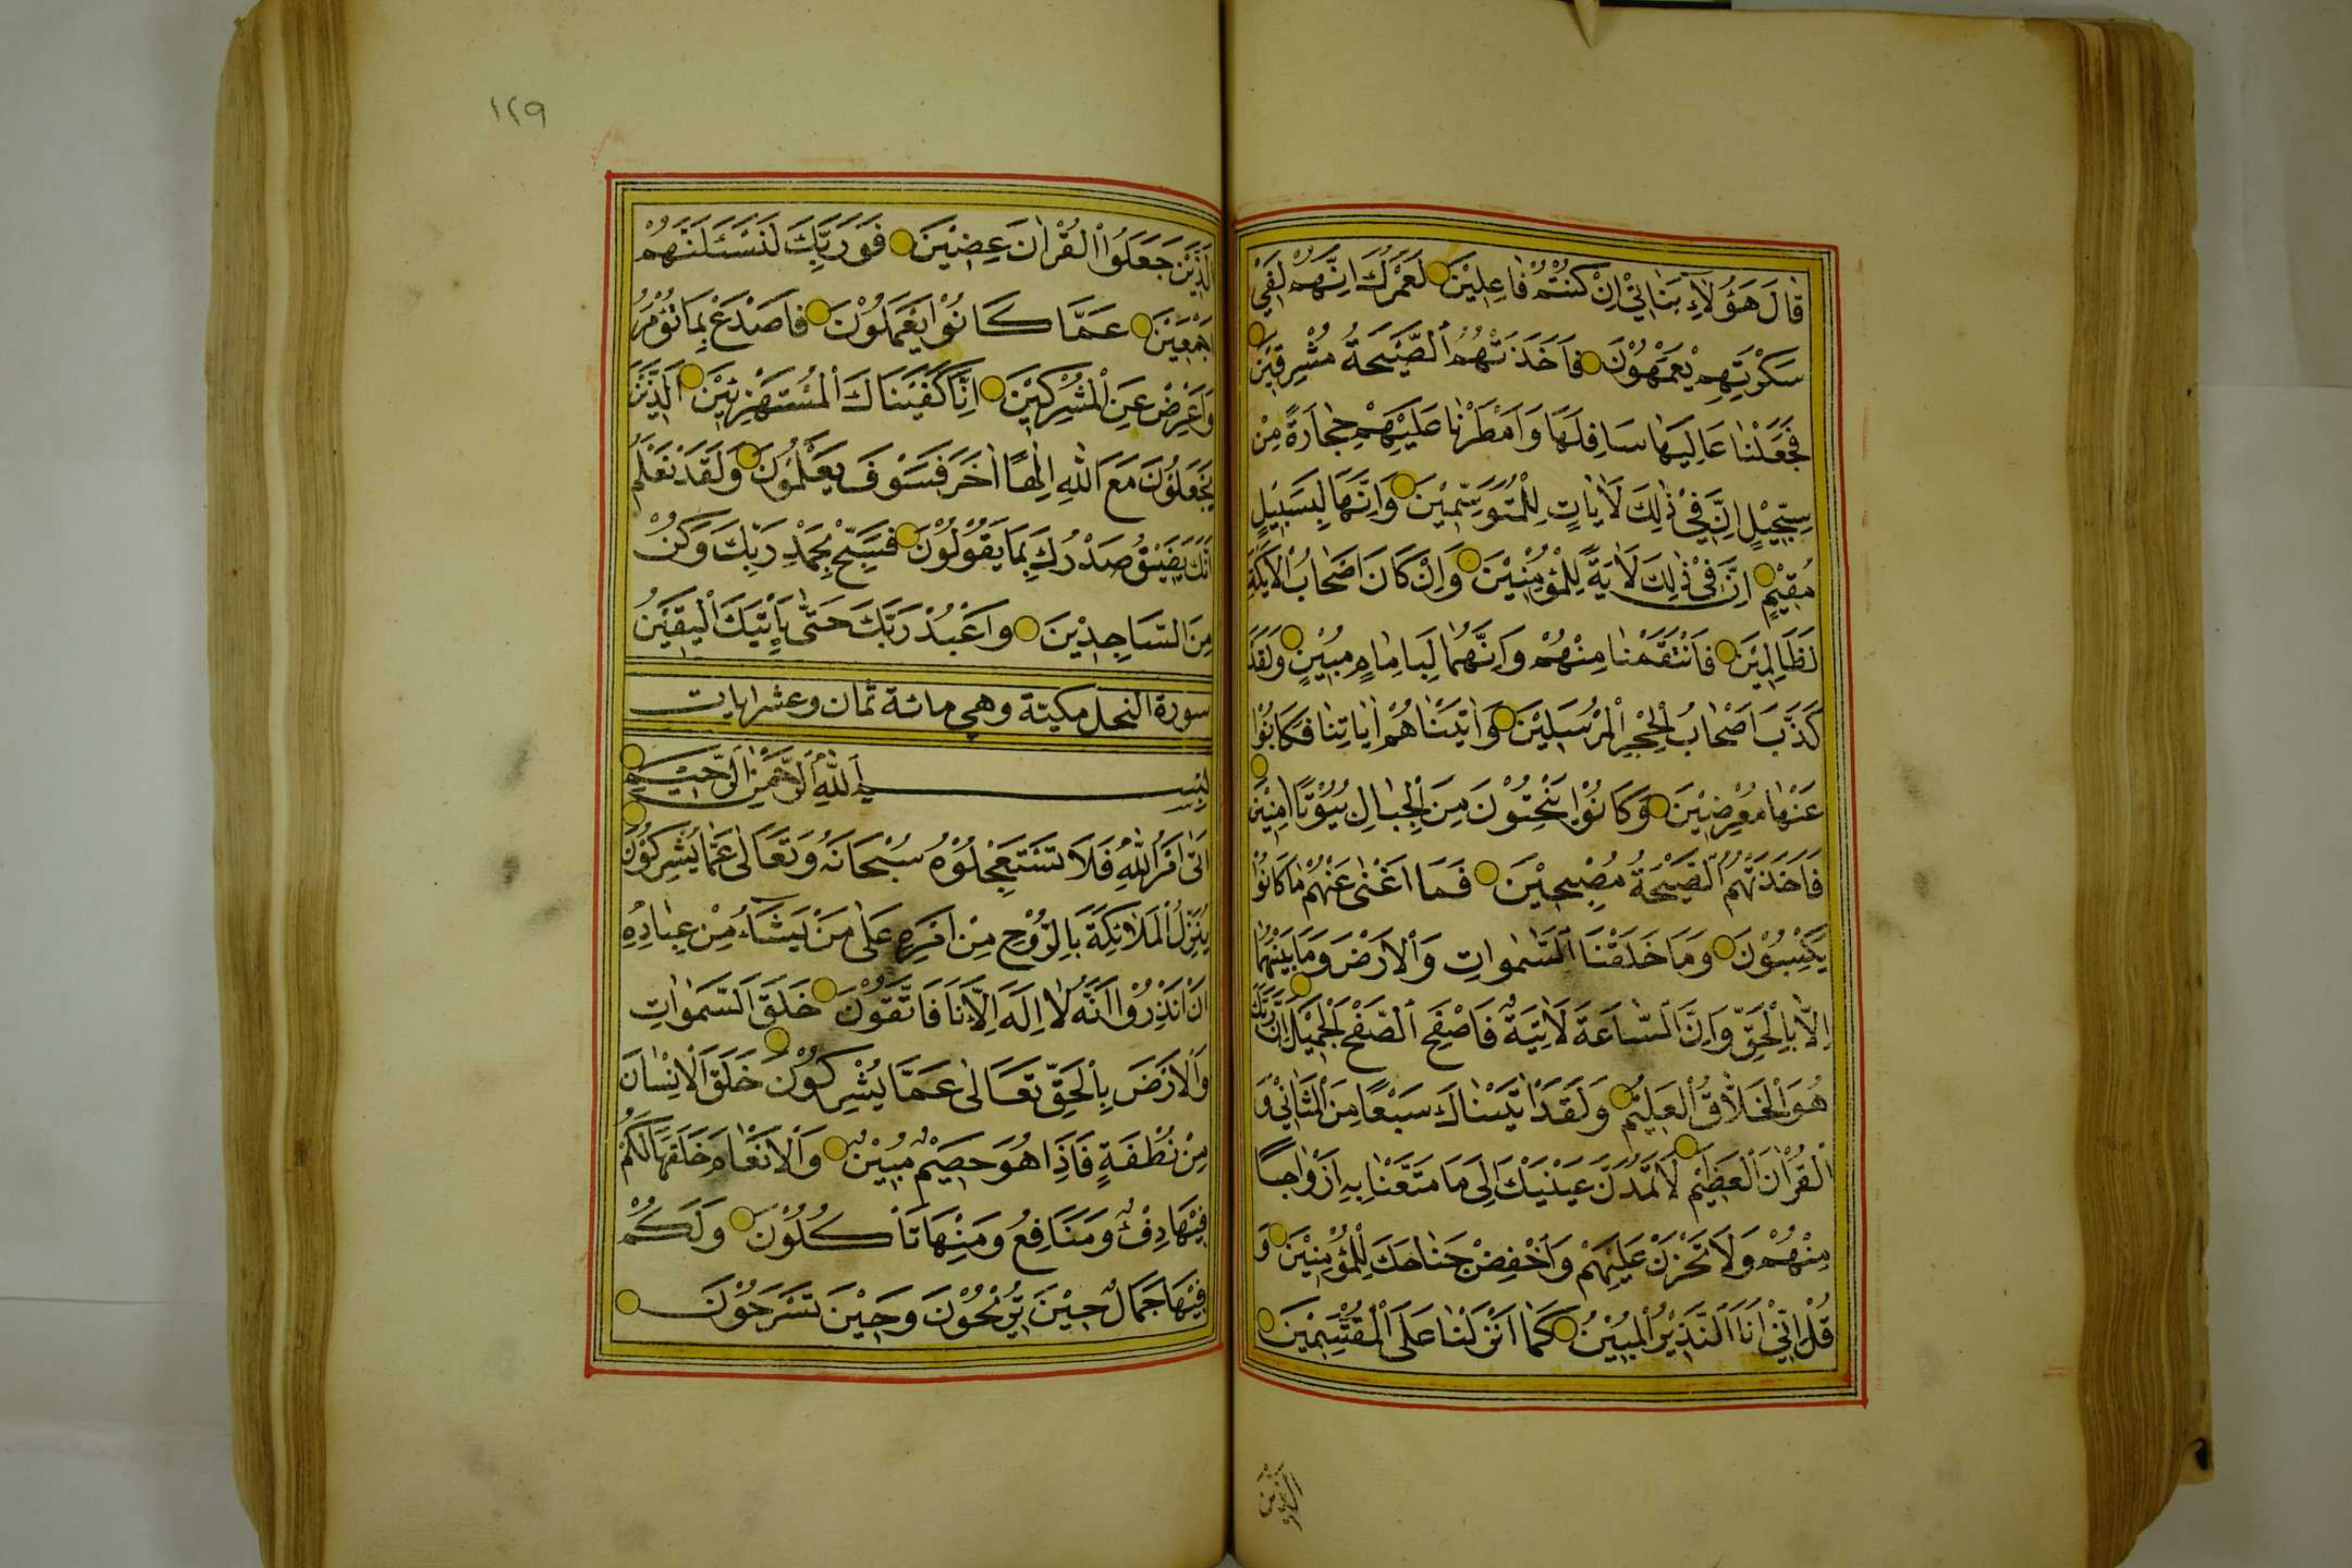 قَالَ هَؤُلَاءِ بَنَاتِي اِنْ كُنْتُمْ فَاعِلِيْنَ لَعَمْرُكَ اِنَّهُمْ لَفِيْ
سَكْرَتِهِمْ يَعْمَهُوْنَ فَاَخَذَتْهُمُ الصَّيْحَةُ مُشْرِقِيْنَ
فَجَعَلْنَا عَالِيَهَا سَافِلَهَا وَاَمْطَرْنَا عَلَيْهِمْ حِجَارَةً مِنْ
سِجِّيْلٍ اِنَّ فِيْ ذٰلِكَ لَاٰيَاتٍ لِلْمُتَوَسِّمِيْنَ وَاِنَّهَا لَبِسَبِيْلٍ
مُقِيْمٍ اِنَّ فِيْ ذٰلِكَ لَاٰيَةً لِلْمُؤْمِنِيْنَ وَاِنْ كَانَ اَصْحَابُ الْاَيْكَةِ
لَظَالِمِيْنَ فَانْتَقَمْنَا مِنْهُمْ وَاِنَّهُمَا لَبِاِمَامٍ مُبِيْنٍ وَلَقَدْ
كَذَّبَ اَصْحَابُ الْحِجْرِ الْمُرْسَلِيْنَ وَاٰتَيْنَاهُمْ اٰيَاتِنَا فَكَانُوْا
عَنْهَا مُعْرِضِيْنَ وَكَانُوْا يَنْحِتُوْنَ مِنَ الْجِبَالِ بُيُوْتًا اٰمِنِيْنَ
فَاَخَذَتْهُمُ الصَّيْحَةُ مُصْبِحِيْنَ فَمَا اَغْنٰى عَنْهُمْ مَا كَانُوْا
يَكْسِبُوْنَ وَمَا خَلَقْنَا السَّمٰوَاتِ وَالْاَرْضَ وَمَا بَيْنَهُمَا
اِلَّا بِالْحَقِّ وَاِنَّ السَّاعَةَ لَاٰتِيَةٌ فَاصْفَحِ الصَّفْحَ الْجَمِيْلَ اِنَّ رَبَّكَ
هُوَ الْخَلَّاقُ الْعَلِيْمُ وَلَقَدْ اٰتَيْنَاكَ سَبْعًا مِنَ الْمَثَانِيْ وَ
الْقُرْاٰنَ الْعَظِيْمَ لَا تَمُدَّنَّ عَيْنَيْكَ اِلٰى مَا مَتَّعْنَا بِهِ اَزْوَاجًا
مِنْهُمْ وَلَا تَحْزَنْ عَلَيْهِمْ وَاخْفِضْ جَنَاحَكَ لِلْمُؤْمِنِيْنَ وَ
قُلْ اِنِّيْ اَنَا النَّذِيْرُ الْمُبِيْنُ كَمَا اَنْزَلْنَا عَلَى الْمُقْتَسِمِيْنَ
١٢٩
اَلَّذِيْنَ جَعَلُوا الْقُرْاٰنَ عِضِيْنَ فَوَرَبِّكَ لَنَسْئَلَنَّهُمْ
اَجْمَعِيْنَ عَمَّا كَانُوْا يَعْمَلُوْنَ فَاصْدَعْ بِمَا تُؤْمَرُ
وَاَعْرِضْ عَنِ الْمُشْرِكِيْنَ اِنَّا كَفَيْنَاكَ الْمُسْتَهْزِئِيْنَ اَلَّذِيْنَ
يَجْعَلُوْنَ مَعَ اللّٰهِ اِلٰهًا اٰخَرَ فَسَوْفَ يَعْلَمُوْنَ وَلَقَدْ نَعْلَمُ
اَنَّكَ يَضِيْقُ صَدْرُكَ بِمَا يَقُوْلُوْنَ فَسَبِّحْ بِحَمْدِ رَبِّكَ وَكُنْ
مِنَ السَّاجِدِيْنَ وَاعْبُدْ رَبَّكَ حَتّٰى يَاْتِيَكَ الْيَقِيْنُ
سورة النحل مكية وهي مائة ثمان وعشر ايات
بِسْمِ اللّٰهِ الرَّحْمٰنِ الرَّحِيْمِ
اَتٰى اَمْرُ اللّٰهِ فَلَا تَسْتَعْجِلُوْهُ سُبْحَانَهُ وَتَعَالٰى عَمَّا يُشْرِكُوْنَ
يُنَزِّلُ الْمَلَائِكَةَ بِالرُّوْحِ مِنْ اَمْرِهِ عَلٰى مَنْ يَشَاءُ مِنْ عِبَادِهِ
اَنْ اَنْذِرُوْا اَنَّهُ لَا اِلٰهَ اِلَّا اَنَا فَاتَّقُوْنَ خَلَقَ السَّمَوَاتِ
وَالْاَرْضَ بِالْحَقِّ تَعَالٰى عَمَّا يُشْرِكُوْنَ خَلَقَ الْاِنْسَانَ
مِنْ نُطْفَةٍ فَاِذَا هُوَ خَصِيْمٌ مُبِيْنٌ وَالْاَنْعَامَ خَلَقَهَا لَكُمْ
فِيْهَا دِفْءٌ وَمَنَافِعُ وَمِنْهَا تَاْكُلُوْنَ وَلَكُمْ
فِيْهَا جَمَالٌ حِيْنَ تُرِيْحُوْنَ وَحِيْنَ تَسْرَحُوْنَ